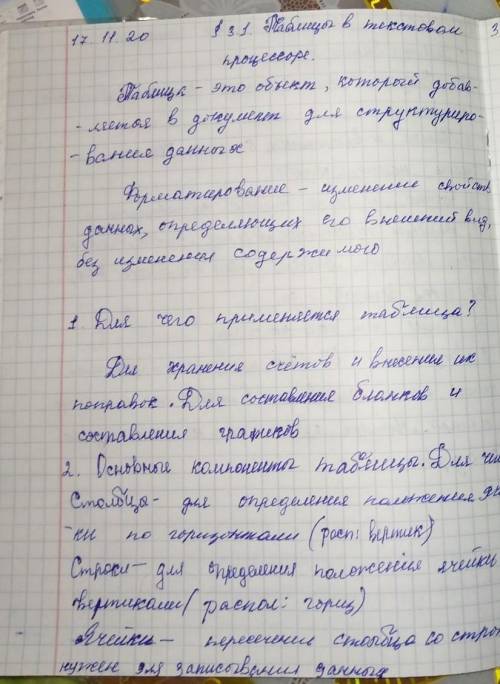 17.11.20 § 3.1. Таблицы в текстовом
процессоре.
Таблица - это объект, который добав-
- ляется в документ для структуриро-
- вания данных
Форматирование - изменение свойств
данных, определяющих его внешний вид,
без изменения содержимого
1. Для чего применяется таблица?
Для хранения счётов и внесения их
поправок. Для составления бланков и
составления графиков
2. Основные компоненты таблицы. Для че
Столбцы - для определения положения яч
-ки по горизонтали (расп: вертик)
Строки - для определения положения ячейки
вертикали (распол: гориз)
Ячейки - пересечение столбца со строк
нужен для записывания данных